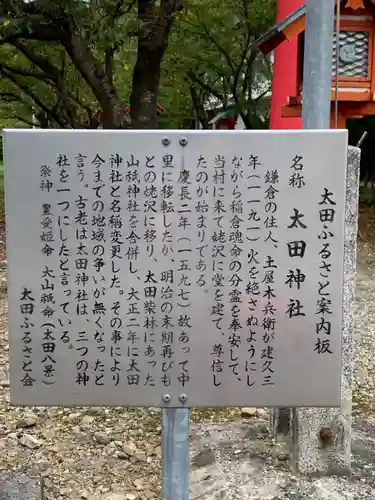 太田ふるさと案内板
名称 太田神社
鎌倉の住人、土屋木兵衛が建久三
年(一一九一)火を絶さぬようにし
ながら稲倉魂命の分霊を奉安して、
当村に来て蛯沢に堂を建て、尊信し
たのが始まりである。
慶長二年(一五九七)故あって中
里に移転したが、明治の末期再びも
との蛯沢に移り、太田柴林にあった
山祇神社を合併し、大正二年に太田
神社と名称変更した。その事により
今までの地域の争いが無くなったと
言う。古老は太田神社は、三つの神
社を一つにしたと言っている。
祭神 豊受姫命 大山祇命(太田八景)
太田ふるさと会